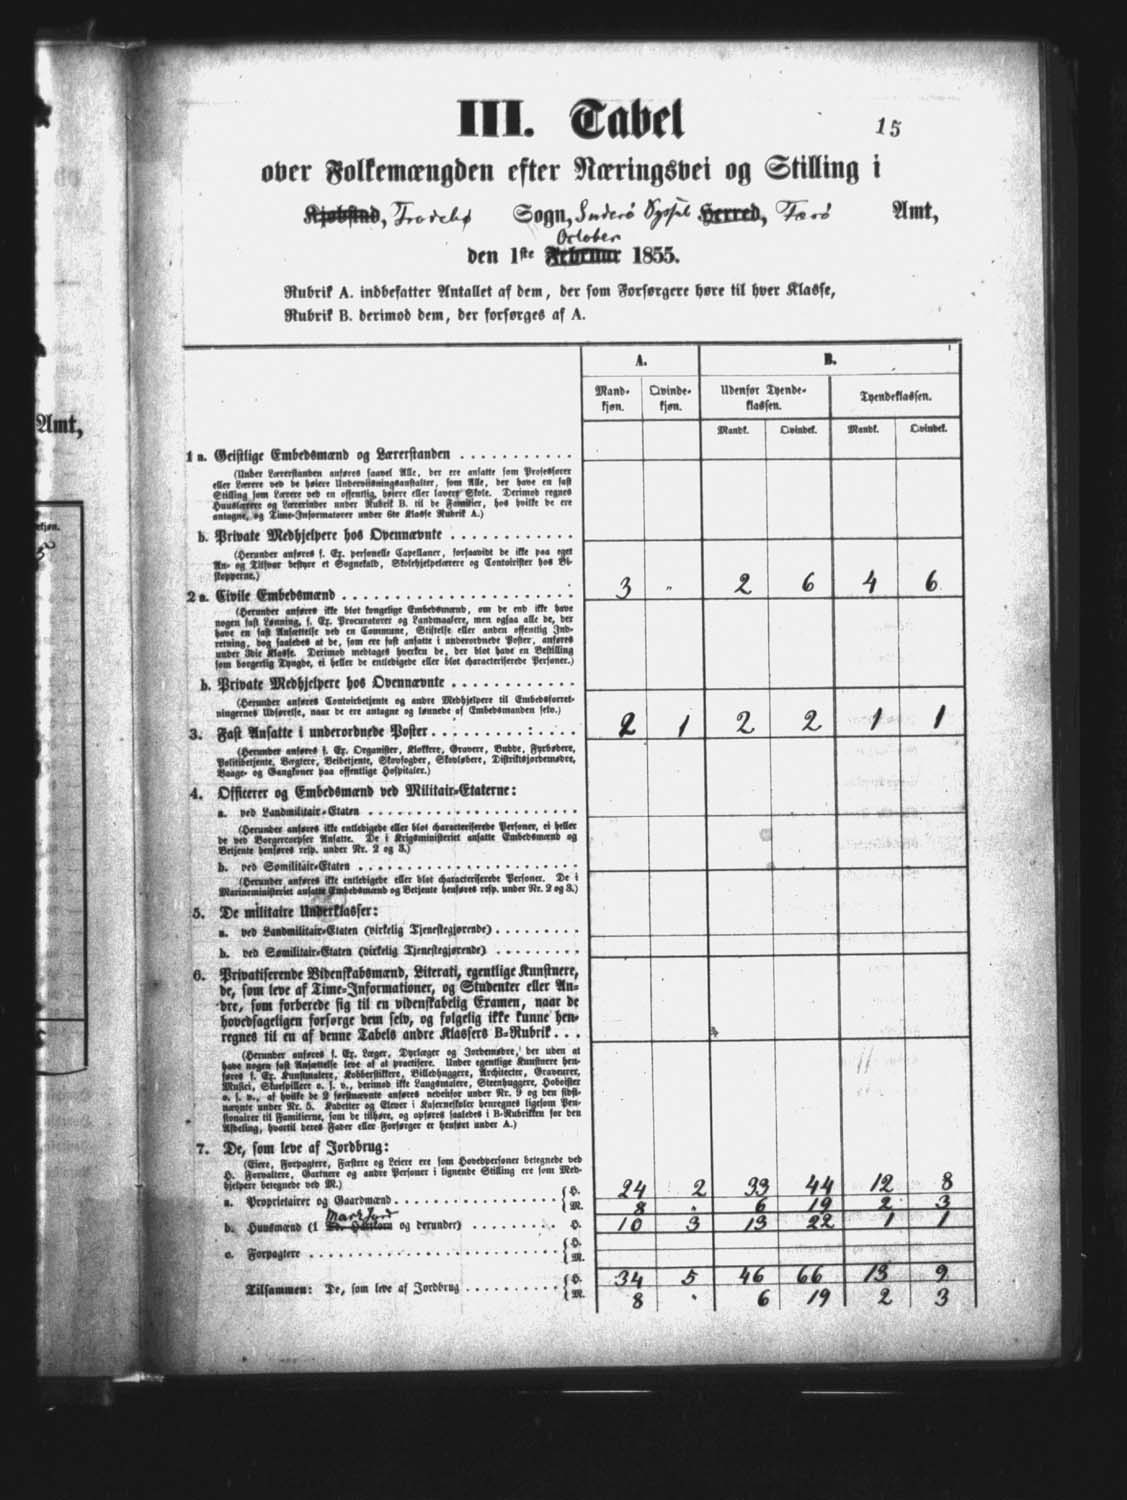 15
III. Tabel
over Folkemængden efter Næringsvei og Stilling i
Kjøbstad, Frodebø Sogn, Suderø Syssel Herred, Færø Amt,
October
den 1ste Februar 1855.
Rubrik A. indbefatter Antallet af dem, der som Forsørgere høre til hver Klasse,
Rubrik B. derimod dem, der forsørges af A.
A. B.
Mandkjøn. Qvindekjøn. Udenfor Tyendeklassen. Tyendeklassen.
Mandk. Qvindek. Mandk. Qvindek.
1 a. Geistlige Embedsmænd og Lærerstanden
(Under Lærerstanden anføres saavel Alle, der ere ansatte som Professorer
eller Lærere ved de høiere Underviisningsanstalter, som Alle, der have en fast
Stilling som Lærere ved en offentlig, høiere eller lavere Skole. Derimod regnes
Huuslærere og Lærerinder under Rubrik B. til de Familier, hos hvilke de ere
antagne, og Time-Informatorer under 6te Klasse Rubrik A.)
b. Private Medhjelpere hos Ovennævnte
(Herunder anføres f. Ex. personelle Capellaner, forsaavidt de ikke paa eget
An- og Tilsvar bestyre et Sognekald, Skolehjelpelærere og Contoirister hos Biskopperne.)
2 a. Civile Embedsmænd 3 " 2 6 4 6
(Herunder anføres ikke blot kongelige Embedsmænd, om de end ikke have
nogen fast Lønning, f. Ex. Procuratorer og Landmaalere, men ogsaa alle de, der
have en fast Ansættelse ved en Commune, Stiftelse eller anden offentlig Indretning,
dog saaledes at de, som ere fast ansatte i underordnede Poster, anføres
under 3die Klasse. Derimod medtages hverken de, der blot have en Bestilling
som borgerlig Tyngde, ei heller de entledigede eller blot characteriserede Personer.)
b. Private Medhjelpere hos Ovennævnte
(Herunder anføres Contoirbetjente og andre Medhjelpere til Embedsforretningernes
Udførelse, naar de ere antagne og lønnede af Embedsmanden selv.)
3. Fast Ansatte i underordnede Poster 2 1 2 2 1 1
(Herunder anføres f. Ex. Organister, Klokkere, Gravere, Budde, Fyrbødere,
Politibetjente, Vægtere, Veibetjente, Skovfogder, Skovløbere, Distriktsjordemødre,
Vaage- og Gangkoner paa offentlige Hospitaler.)
4. Officerer og Embedsmænd ved Militair-Etaterne:
a. ved Landmilitair-Etaten
(Herunder anføres ikke entledigede eller blot characteriserede Personer, ei heller
de ved Borgercorpser Ansatte. De i Krigsministeriet ansatte Embedsmænd og
Betjente henføres resp. under Nr. 2 og 3.)
b. ved Sømilitair-Etaten
(Herunder anføres ikke entledigede eller blot characteriserede Personer. De i
Marineministeriet ansatte Embedsmænd og Betjente henføres resp. under Nr. 2 og 3.)
5. De militaire Underklasser:
a. ved Landmilitair-Etaten (virkelig Tjenestegjørende)
b. ved Sømilitair-Etaten (virkelig Tjenestegjørende)
6. Privatiserende Videnskabsmænd, Literati, egentlige Kunstnere,
de, som leve af Time-Informationer, og Studenter eller Andre,
som forberede sig til en videnskabelig Examen, naar de
hovedsageligen forsørge dem selv, og følgelig ikke kunne henregnes
til en af denne Tabels andre Klassers B-Rubrik
(Herunder anføres f. Ex. Læger, Dyrlæger og Jordemødre, der uden at
have nogen fast Ansættelse leve af at practisere. Under egentlige Kunstnere henføres
f. Ex. Kunstmalere, Kobberstikkere, Billedhuggere, Architecter, Graveurer,
Musici, Skuespillere o. s. v., derimod ikke Laugsmalere, Steenhuggere, Hoboister
o. s. v., af hvilke de 2 førstnævnte anføres nedenfor under Nr. 9 og den sidstnævnte
under Nr. 5. Kadetter og Elever i Kaserneskoler henregnes ligesom Pensionairer
til Familierne, som de tilhøre, og opføres saaledes i B-Rubrikken for den
Afdeling, hvortil deres Fader eller Forsørger er henført under A.)
7. De, som leve af Jordbrug:
(Eiere, Forpagtere, Fæstere og Leiere ere som Hovedpersoner betegnede ved
H. Forvaltere, Gartnere og andre Personer i lignende Stilling ere som Medhjelpere
betegnede ved M.)
a. Proprietairer og Gaardmænd H. 24 2 33 44 12 8
M. 8 . 6 19 2 3
Mark Jord
b. Huusmænd (1 og derunder) H. 10 3 13 22 1 1
c. Forpagtere H.
M.
Tilsammen: De, som leve af Jordbrug H. 34 5 46 66 13 9
M. 8 . 6 19 2 3
Amt,